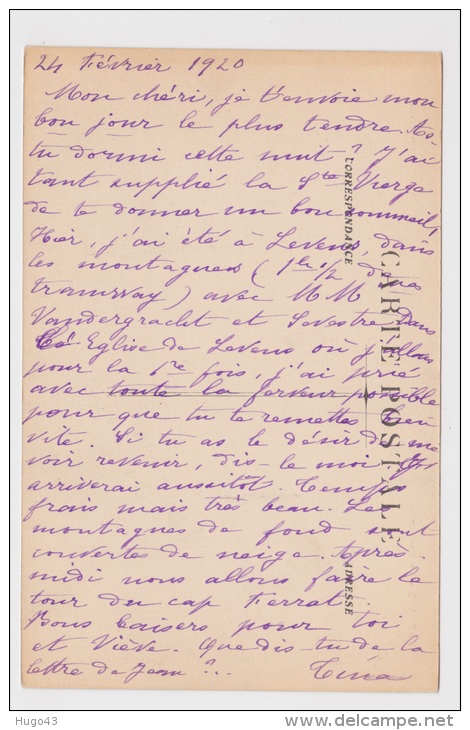 24 Février 1920
Mon chéri, je t'envoie mon
bon jour le plus tendre. As-
tu dormi cette nuit ? J'ai
tant supplié la Ste Vierge
de te donner un bon sommeil !
Hier, j'ai été à Levens, dans
les montagnes (1h 1/2 de
tramway) avec MM
Vandergracht et Sevestre. Dans
l'Eglise de Levens où j'allais
pour la 1re fois, j'ai prié
avec toute la ferveur possible
pour que tu te remettes bien
vite. Si tu as le désir de me
voir revenir, dis-le moi. J'y
arriverai aussitôt. Temps
frais mais très beau. Les
montagnes de fond sont
couvertes de neige. Après-
midi nous allons faire le
tour du cap Ferrat.
Bons baisers pour toi
et Viève. Que dis-tu de la
lettre de Jean ?.. Tina
CARTE POSTALE
CORRESPONDANCE
ADRESSE
Hugo43
delcampe.net